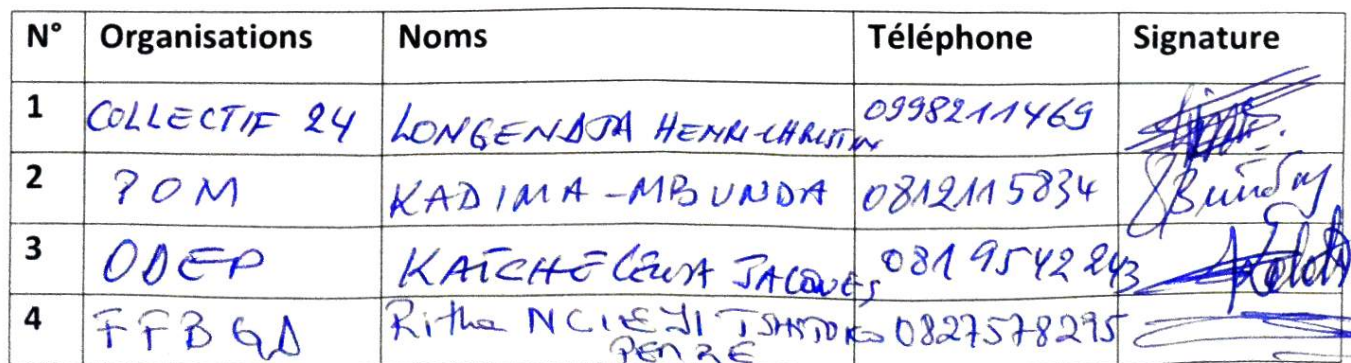 N° Organisations Noms Téléphone Signature
1 COLLECTIF 24 LONGENDJA HENRI-CHRISTIN 0998211469
2 POM KADIMA-MBUNDA 0812115834
3 ODEP JACQUES 081 9542243
4 FFBGD Ritha 0827578295